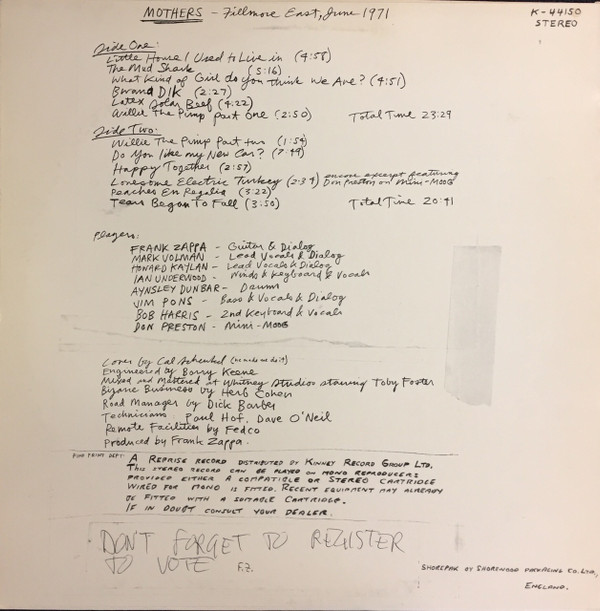 MOTHERS - Fillmore East, June 1971
K-44150
STEREO
Side One:
Little House I Used to Live in (4:58)
The Mud Shark (5:16)
What Kind of Girl do you Think We Are? (4:51)
Bwana Dik (2:27)
Latex Solar Beef (4:22)
Willie The Pimp part One (2:50) Total Time 23:29
Side Two:
Willie The Pimp Part two (1:54)
Do You like my New Car? (7:49)
Happy Together (2:57)
Lonesome Electric Turkey (2:34) encore excerpt featuring Don Preston on Mini-MOOG
Peaches En Regalia (3:22)
Tears Began To Fall (3:50) Total Time 20:41
Players:
FRANK ZAPPA - Guitar & Dialog
MARK VOLMAN - Lead Vocals & Dialog
HOWARD KAYLAN - Lead Vocals & Dialog
IAN UNDERWOOD - Winds & Keyboard & Vocals
AYNSLEY DUNBAR - Drums
JIM PONS - Bass & Vocals & Dialog
BOB HARRIS - 2nd Keyboard & Vocals
DON PRESTON - Mini-MOOG
Cover by Cal Schenkel (he made me do it)
Engineered by Barry Keene
Mixed and Mastered at Whitney Studios starring Toby Foster
Bizarre Business by Herb Cohen
Road Manager by Dick Barber
Technicians: Paul Hof, Dave O'Neil
Remote Facilities by Fedco
Produced by Frank Zappa.
FINE PRINT DEPT:
A REPRISE RECORD DISTRIBUTED BY KINNEY RECORD GROUP LTD.
THIS STEREO RECORD CAN BE PLAYED ON MONO REPRODUCERS
PROVIDED EITHER A COMPATIBLE OR STEREO CARTRIDGE
WIRED FOR MONO IS FITTED. RECENT EQUIPMENT MAY ALREADY
BE FITTED WITH A SUITABLE CARTRIDGE.
IF IN DOUBT CONSULT YOUR DEALER.
DON'T FORGET TO REGISTER
TO VOTE F.Z.
SHOREPAK BY SHOREWOOD PACKAGING CO. LTD.,
ENGLAND.